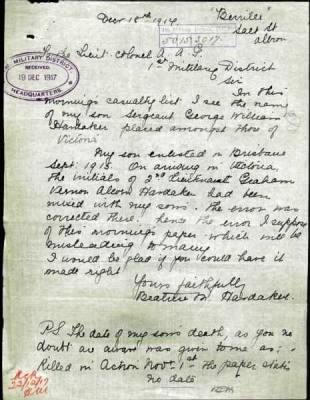 "Berrilee"
Salt St
Albion
Decr 18th 1917
To the Lieut. Colonel A. A. G.
1st Military District
Sir
In this
morning's casualty list I see the name
of my son Sergeant George William
Hardaker placed amongst those of
Victoria
My son enlisted in Brisbane
Sept. 1915. On arriving in Victoria,
the initials of 2nd Lieutenant Graham
Vernon Hardaker had been
mixed with my sons. The error was
corrected there. hence the error I suppose
of this morning's paper. which will be
misleading to many
I would be glad if you could have it
made right
Yours faithfully
Beatrice M. Hardaker.
P.S. The date of my sons death, as you no
doubt are aware was given to me as:-
Killed in Action Novr. 1st - the paper states
no date
MILITARY DISTRICT
RECEIVED
19 DEC 1917
HEADQUARTERS